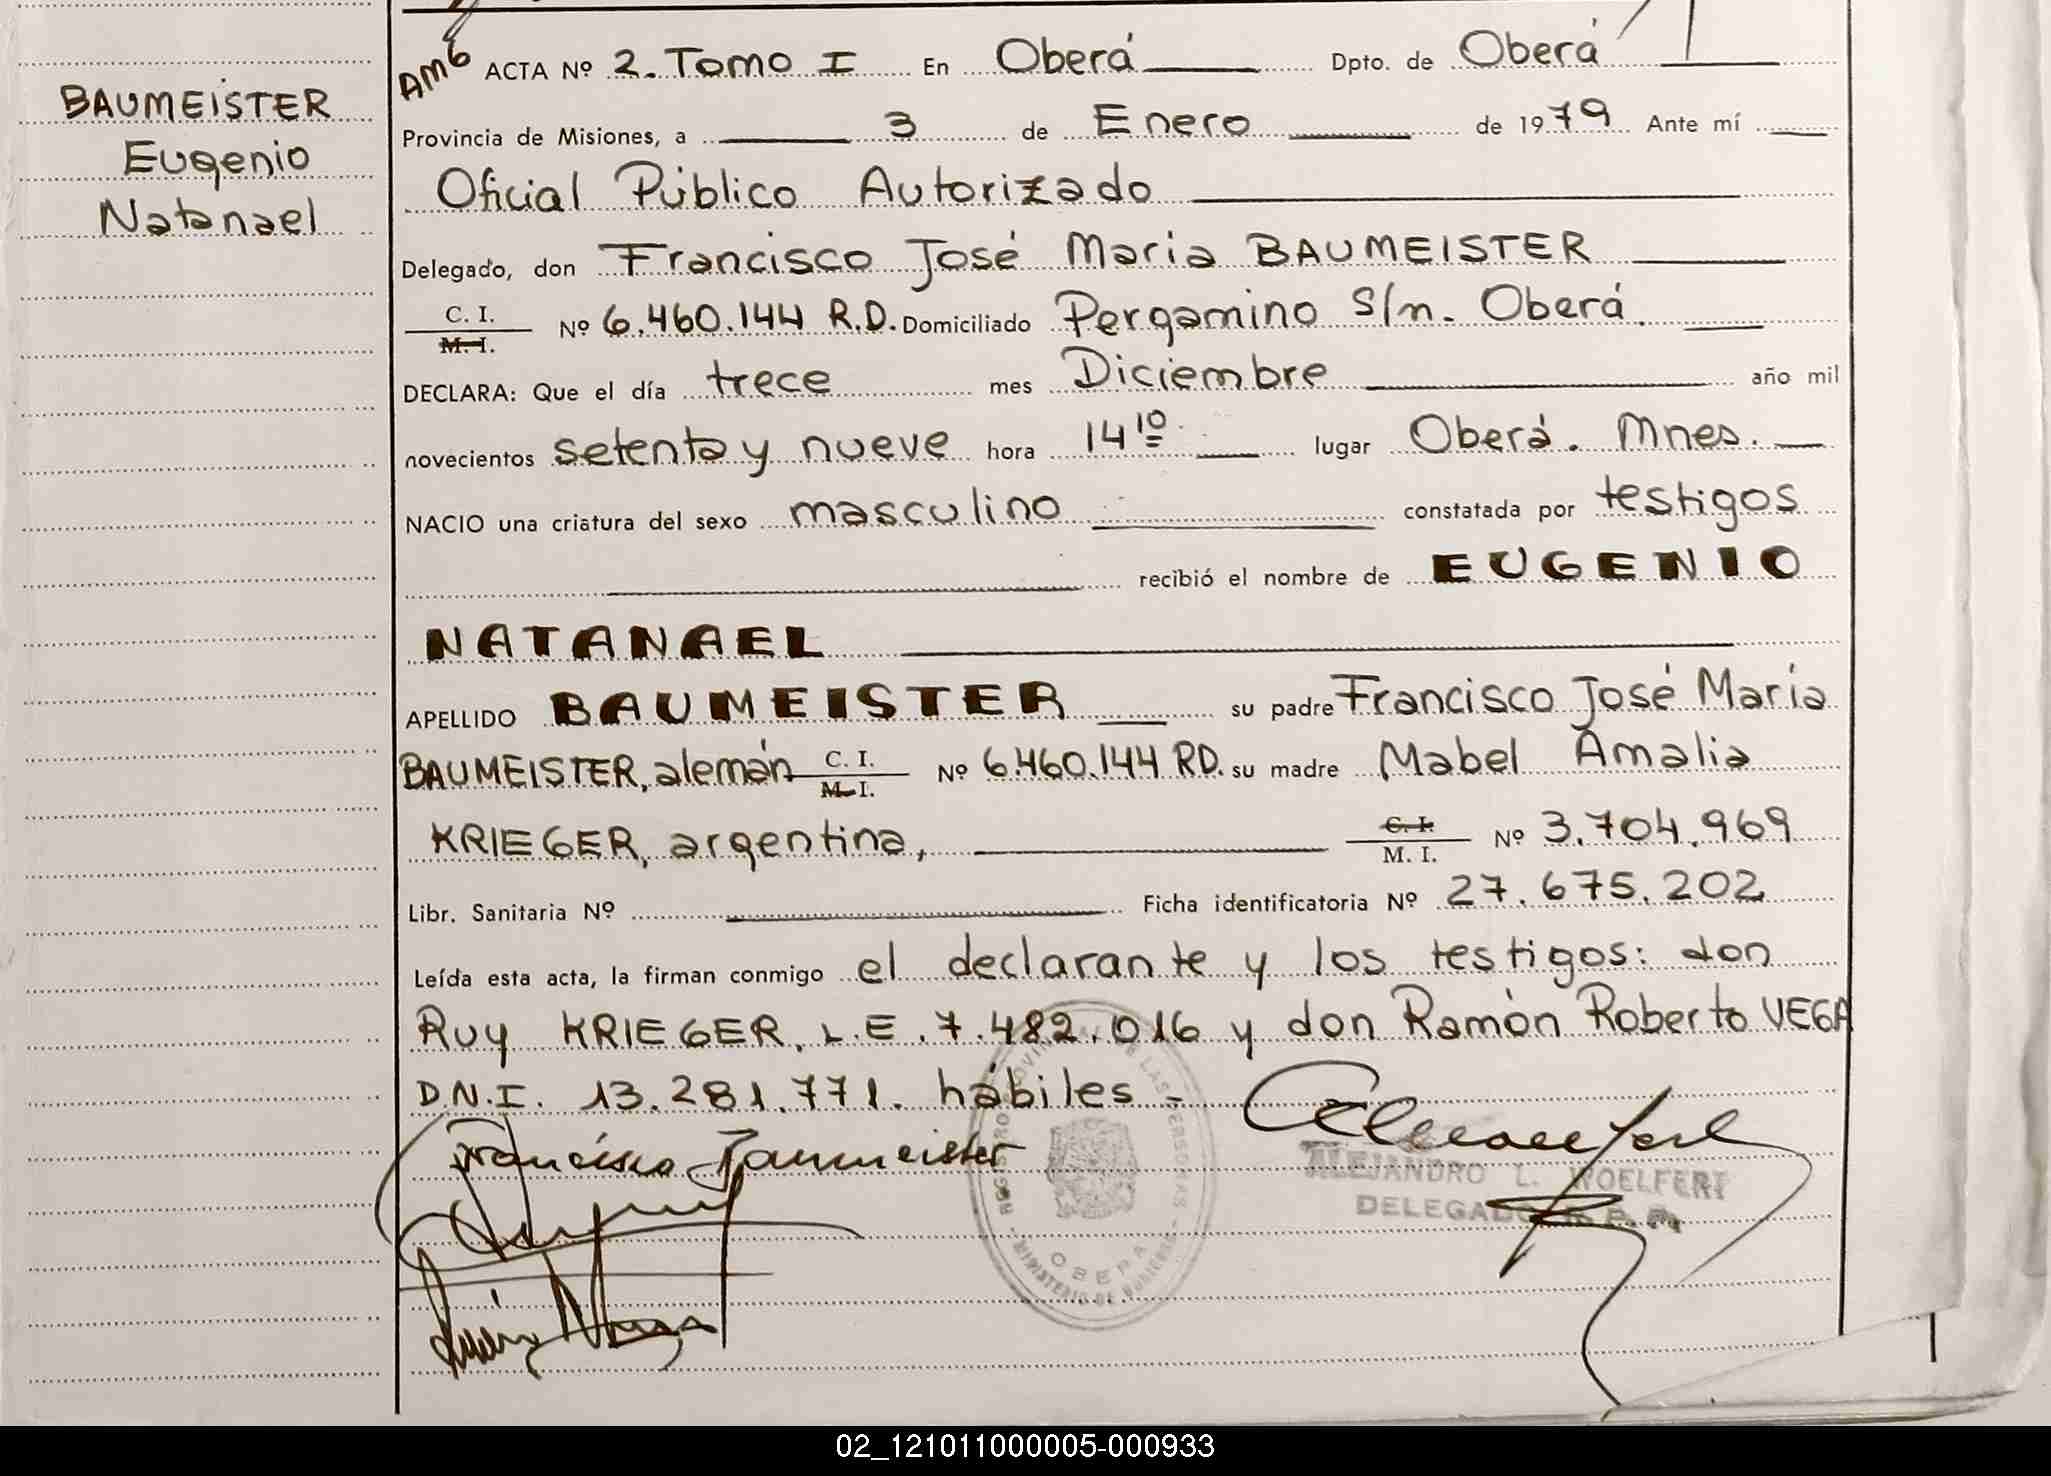 BAUMEISTER
Eugenio
Natanael
AMB ACTA Nº 2. Tomo I En Oberá Dpto. de Oberá
Provincia de Misiones, a 3 de Enero de 1979 Ante mí
Oficial Público Autorizado
Delegado, don Francisco José Maria BAUMEISTER
C. I.
M. I. Nº 6.460.144 R.D. Domiciliado Pergamino S/n. Oberá.
DECLARA: Que el día trece mes Diciembre año mil
novecientos setenta y nueve hora 14 10 lugar Oberá. Mnes.
NACIO una criatura del sexo masculino constatada por testigos
recibió el nombre de EUGENIO
NATANAEL
APELLIDO BAUMEISTER su padre Francisco José María
BAUMEISTER, alemán C. I. Nº 6.460.144 RD. su madre Mabel Amalia
M. I.
KRIEGER, argentina, C. I. Nº 3.704.969
M. I.
Libr. Sanitaria Nº Ficha identificatoria Nº 27.675.202
Leída esta acta, la firman conmigo el declarante y los testigos: don
Ruy KRIEGER, L.E. 7.482.016 y don Ramón Roberto VEGA
D.N.I. 13.281.771. hábiles -
Francisco Baumeister
ALEJANDRO L. WOELFERT
DELEGADO R. P. P.
REGISTRO PROVINCIAL DE LAS PERSONAS - MINISTERIO DE GOBIERNO -
OBERA
02_121011000005-000933